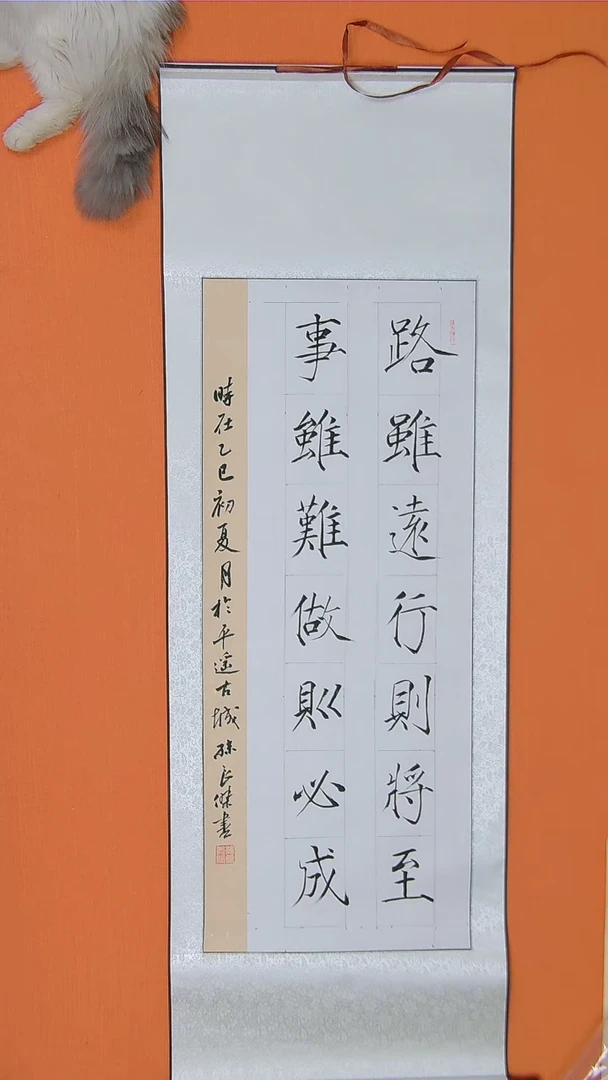 路雖遠行則將至
事雖難做則必成
時在乙巳初夏月於平遥古城孫長傑書